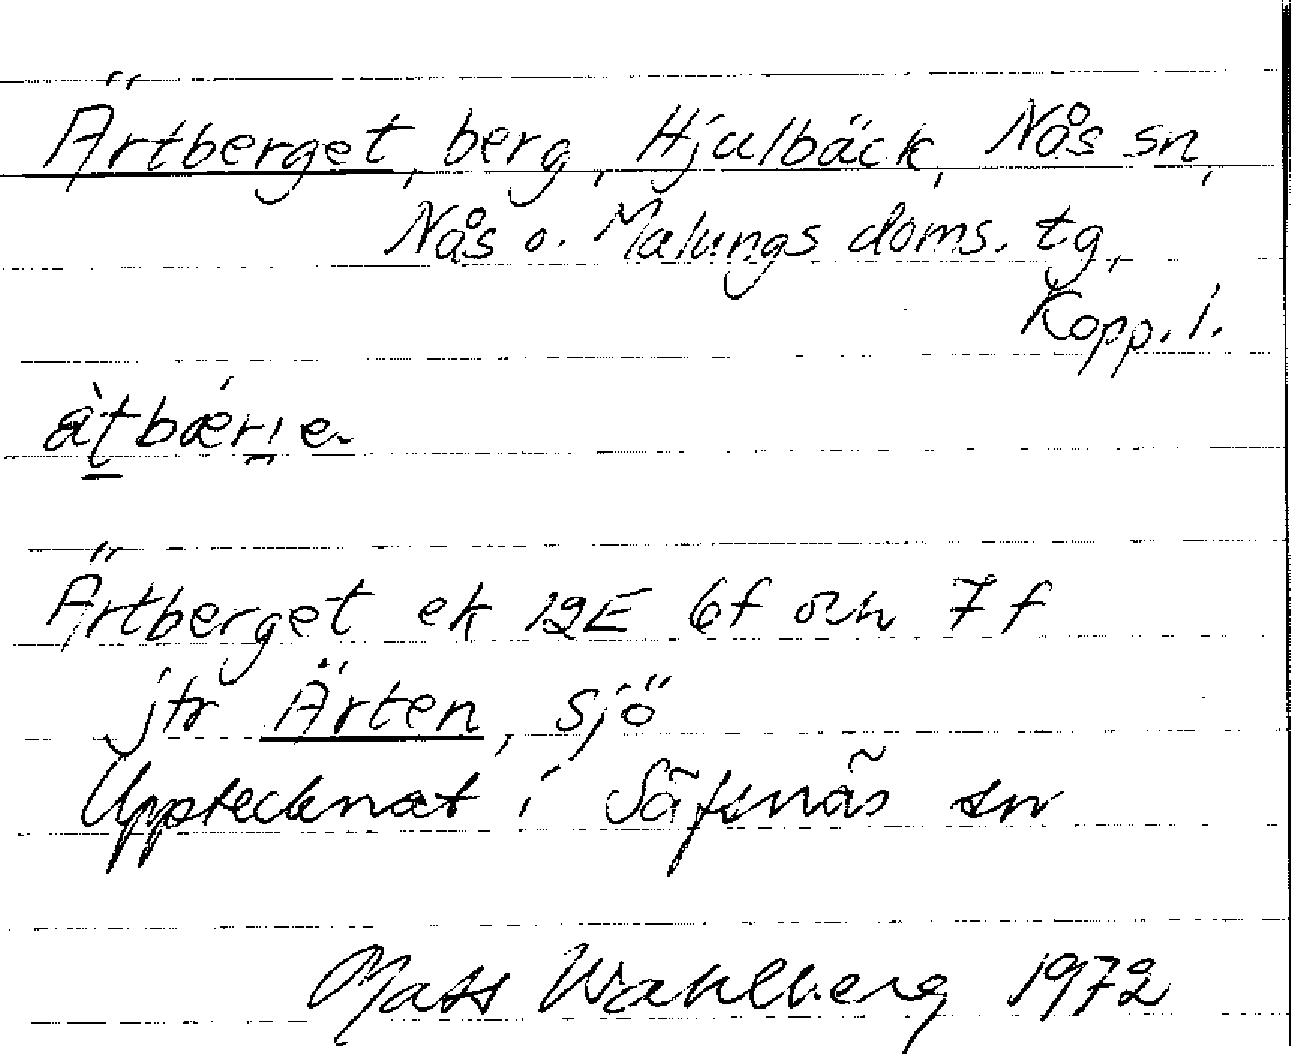 Ärtberget, berg, Hjulbäck, Nås sn,
Nås o. Malungs doms. tg,
Kopp. l.
Ärtberget ek 12E 6f och 7f
jtr Ärten, sjö
Upptecknat i Säfsnäs sn
Mats Wahlberg 1972